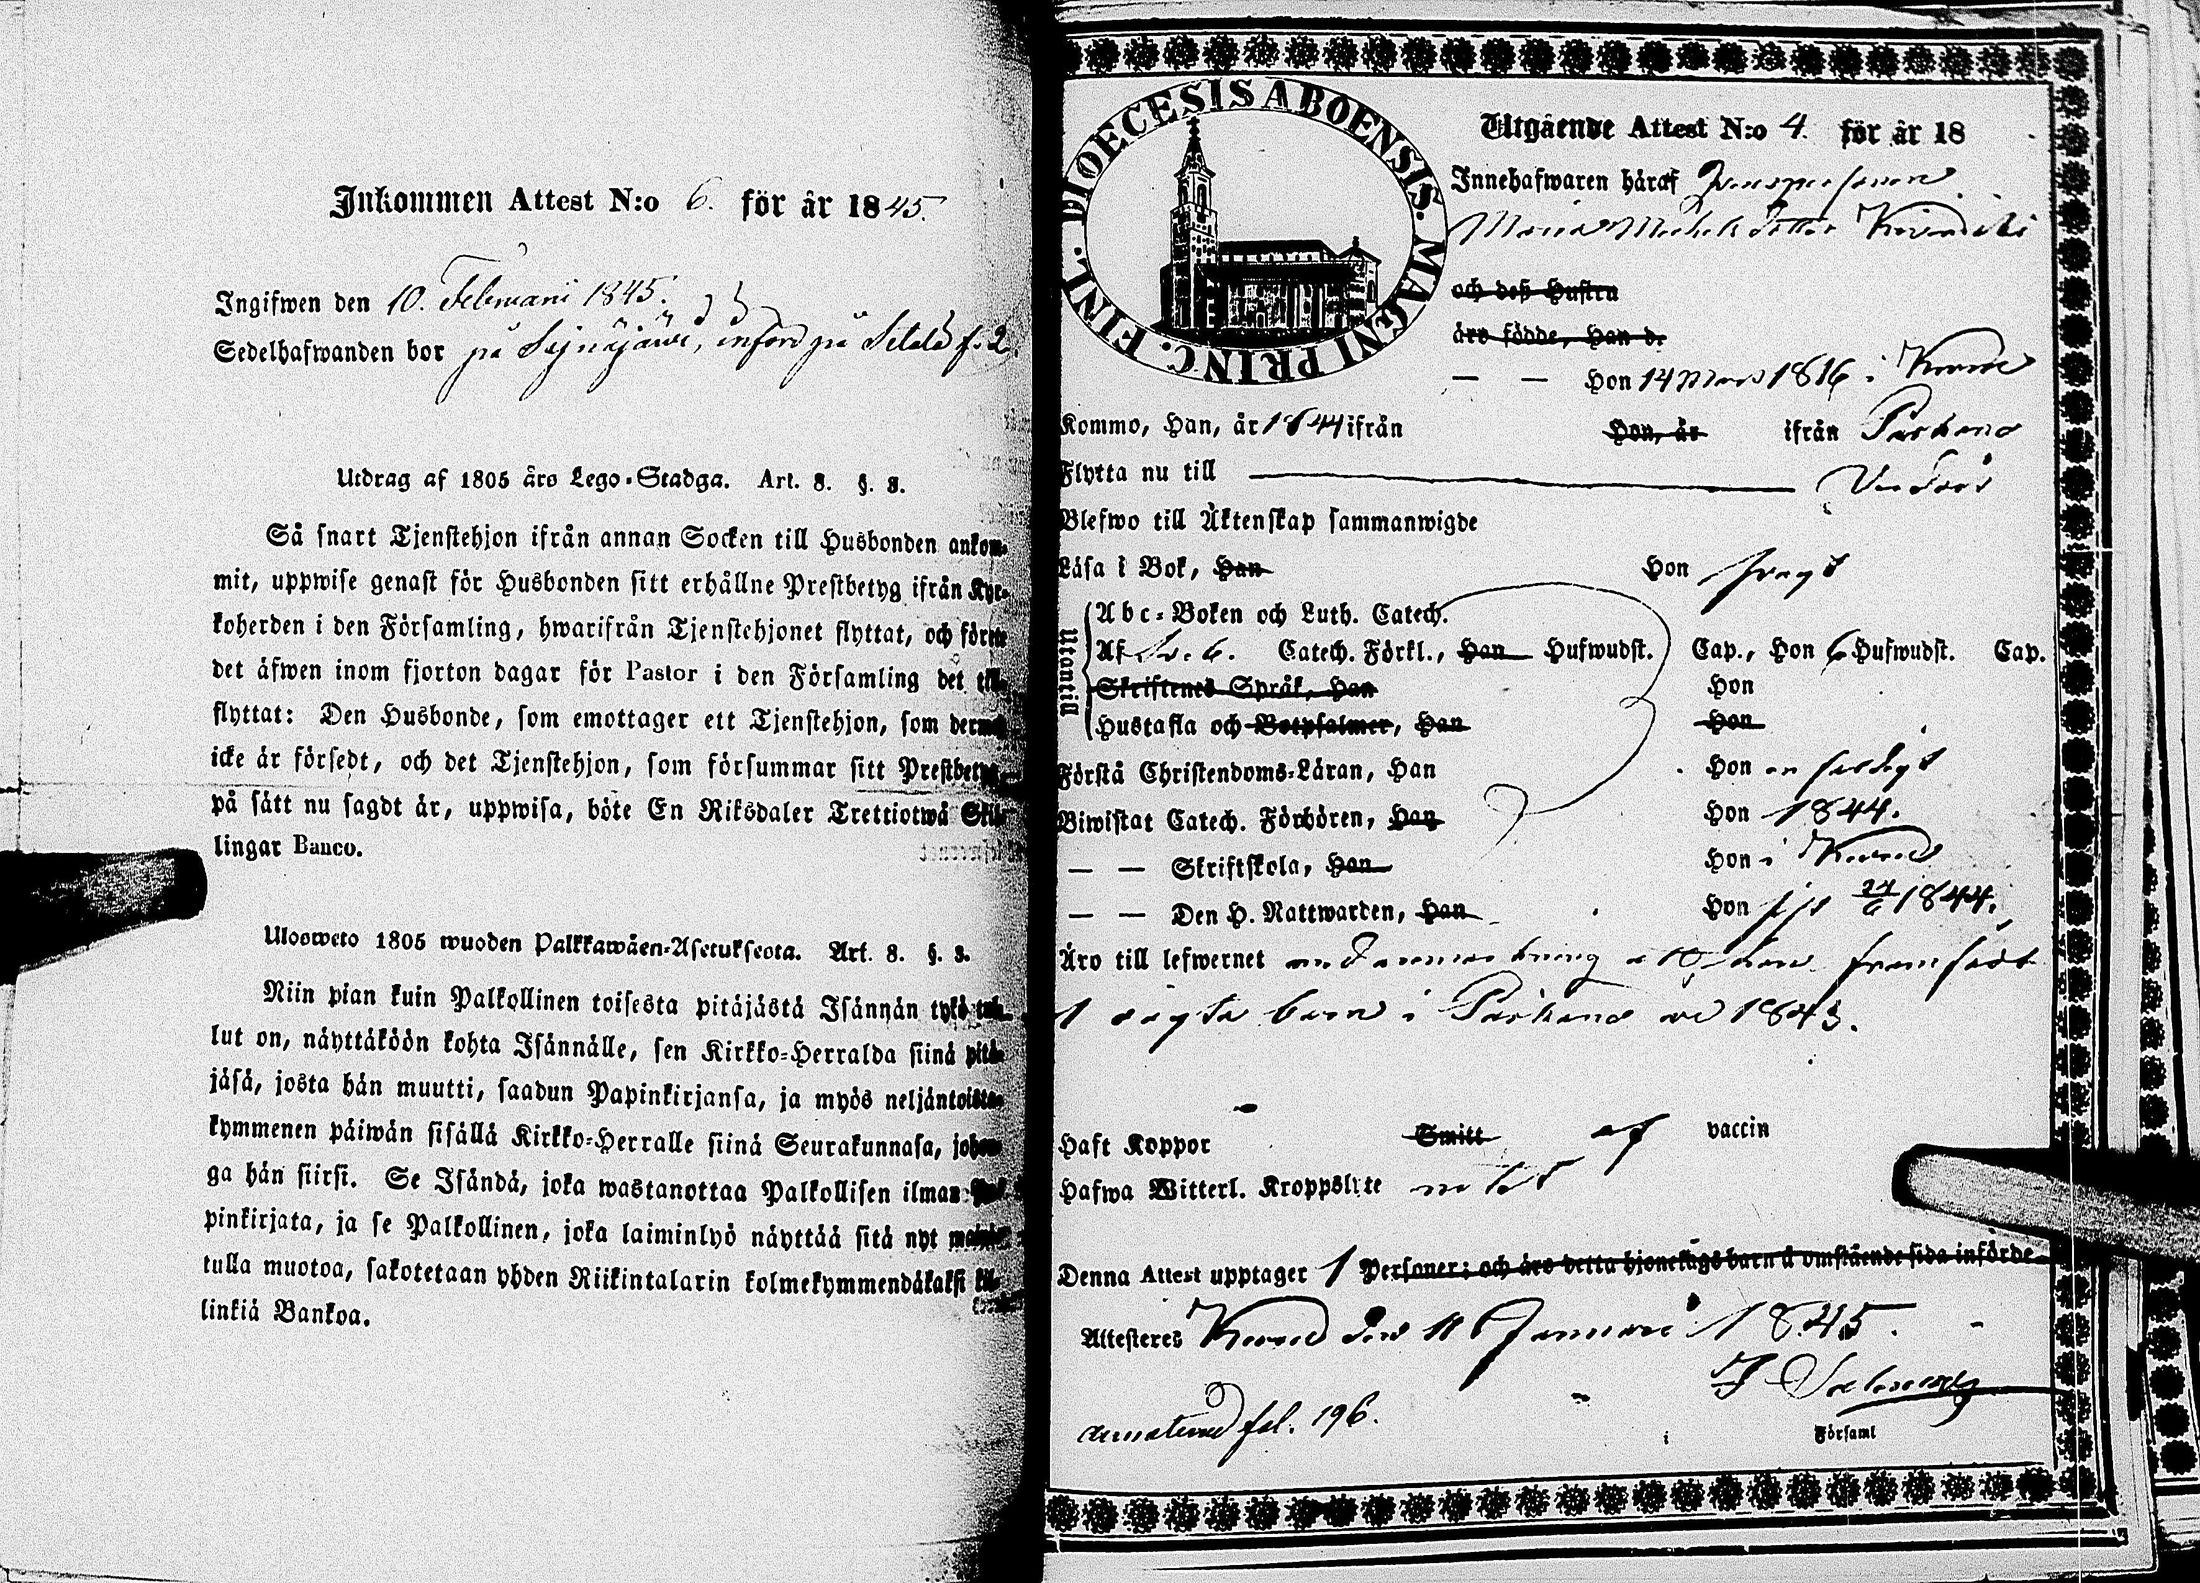 Inkommen Attest N:o 6. för år 1845.
Ingifwen den 10. Februari 1845.
Sedelhafwanden bor på införd på f. 2.
Utdrag af 1805 års Lego-Stadga. Art. 8. §. 3.
Så snart Tjenstehjon ifrån annan Socken till Husbonden ankom-
mit, uppwise genast för Husbonden sitt erhållne Prestbetyg ifrån Kyr-
koherden i den Församling, hwarifrån Tjenstehjonet flyttat, och förete
det äfwen inom fjorton dagar för Pastor i den Församling det till-
flyttat: Den Husbonde, som emottager ett Tjenstehjon, som dermed
icke är försedt, och det Tjenstehjon, som försummar sitt Prestbetyg,
på sätt nu sagdt är, uppwisa, böte En Riksdaler Trettiotwå Skil-
lingar Banco.
Ulosweto 1805 wuoden Palkkawäen-Asetuksesta. Art. 8. §. 3.
Niin pian kuin Palkollinen toisesta pitäjästä Isännän tykö tul-
lut on, näyttäköön kohta Isännälle, sen Kirkko-Herralda siinä pitä-
jäsä, josta hän muutti, saadun Papinkirjansa, ja myös neljäntoista-
kymmenen päiwän sisällä Kirkko-Herralle siinä Seurakunnasa, johon-
ga hän siirsi. Se Isändä, joka wastanottaa Palkollisen ilman Pa-
pinkirjata, ja se Palkollinen, joka laiminlyö näyttää sitä nyt mainit-
tulla muotoa, sakotetaan yhden Riikintalarin kolmekymmendäkaksi kil-
linkiä Bankoa.
DIOECESIS ABOENSIS. MAGNI PRINC. FINL.
Utgående Attest N:o 4. för år 18
Innehafwaren häraf
Maria Michels dotter
och deß Hustru
äro födde, Han d.
— — Hon 14 Mars 1816 i
Kommo, Han, år 1844 ifrån Hon, år ifrån Parkano
Flytta nu till
Blefwo till Äktenskap sammanwigde
Läsa i Bok, Han Hon
Utantill
Abc-Boken och Luth. Catech.
Af Sv. 6. Catech. Förkl., Han Hufwudst. Cap., Hon 6 Hufwudst. Cap.
Skriftenes Språk, Han Hon
Hustafla och Botpsalmer, Han Hon
Förstå Christendoms-Läran, Han Hon
Biwistat Catech. Förhören, Han Hon 1844.
— — Skriftskola, Han Hon i
— — Den H. Nattwarden, Han Hon sist 24/6 1844.
Äro till lefwernet framfödt
1 oägta barn i Parkano år 1843.
Haft Koppor Smitt af vaccin
Hafwa Witterl. Kroppslyte
Denna Attest upptager 1 Personer; och äro detta hjonelags barn å omstående sida införde
Attesteres den 11 Januari 1845.
fol. 196.
i Församl